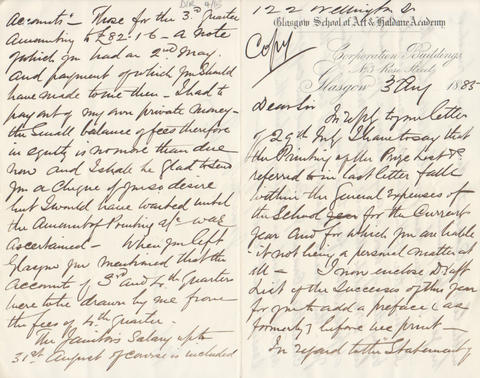 122 Wellington St
Glasgow School of Art & Haldane Academy
Copy
Corporation Buildings
No 3 Rose Street
Glasgow 3 Aug 1885
Dear Sir
In reply to your letter
of 29th I have to say that
the Printing of the Prize List &c.
referred to in last letter falls
within the General Expenses of
the School year for the Current
year and for which you are liable
it not being a personal matter at
all – I now enclose Draft
List of the Successes of this year
for you to add a preface (as
formerly) before we print –
In regard to the Statement of
DIR 4/15
accounts – Those for the 3rd Quarter
amounting to £82.16 – a note
of which you had on 2nd May.
and payment of which you should
have made to me then – I had to
pay out of my own private money –
the small balance of fees therefore
in equity is no more than due
now and I shall be glad to send
you a Cheque if you so desire
but I would have waited until
the Amount of Printing a/c was
ascertained – When you left
Glasgow you mentioned that the
accounts of 3rd and 4th Quarters
were to be drawn by me from
the fees of 4th Quarter.
The Janitor's Salary up to
31st August of course is included